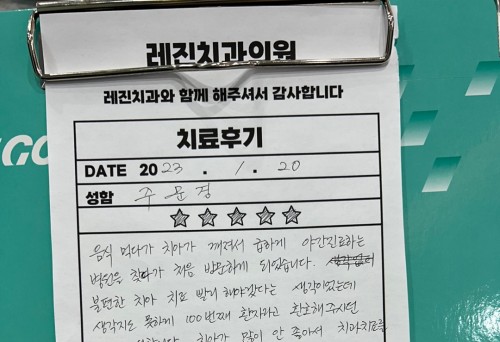 레진치과의원
레진치과와 함께 해주셔서 감사합니다
치료후기
DATE 2023 . 1 . 20
성함 주문경
음식 먹다가 치아가 깨져서 급하게 야간진료하는
병원을 찾다가 처음 방문하게 되었습니다.
불편한 치아 치료 빨리 해야겠다는 생각이었는데
생각지도 못하게 100번째 환자라고 환호해주시던
치아가 많이 안 좋아서 치과치료를